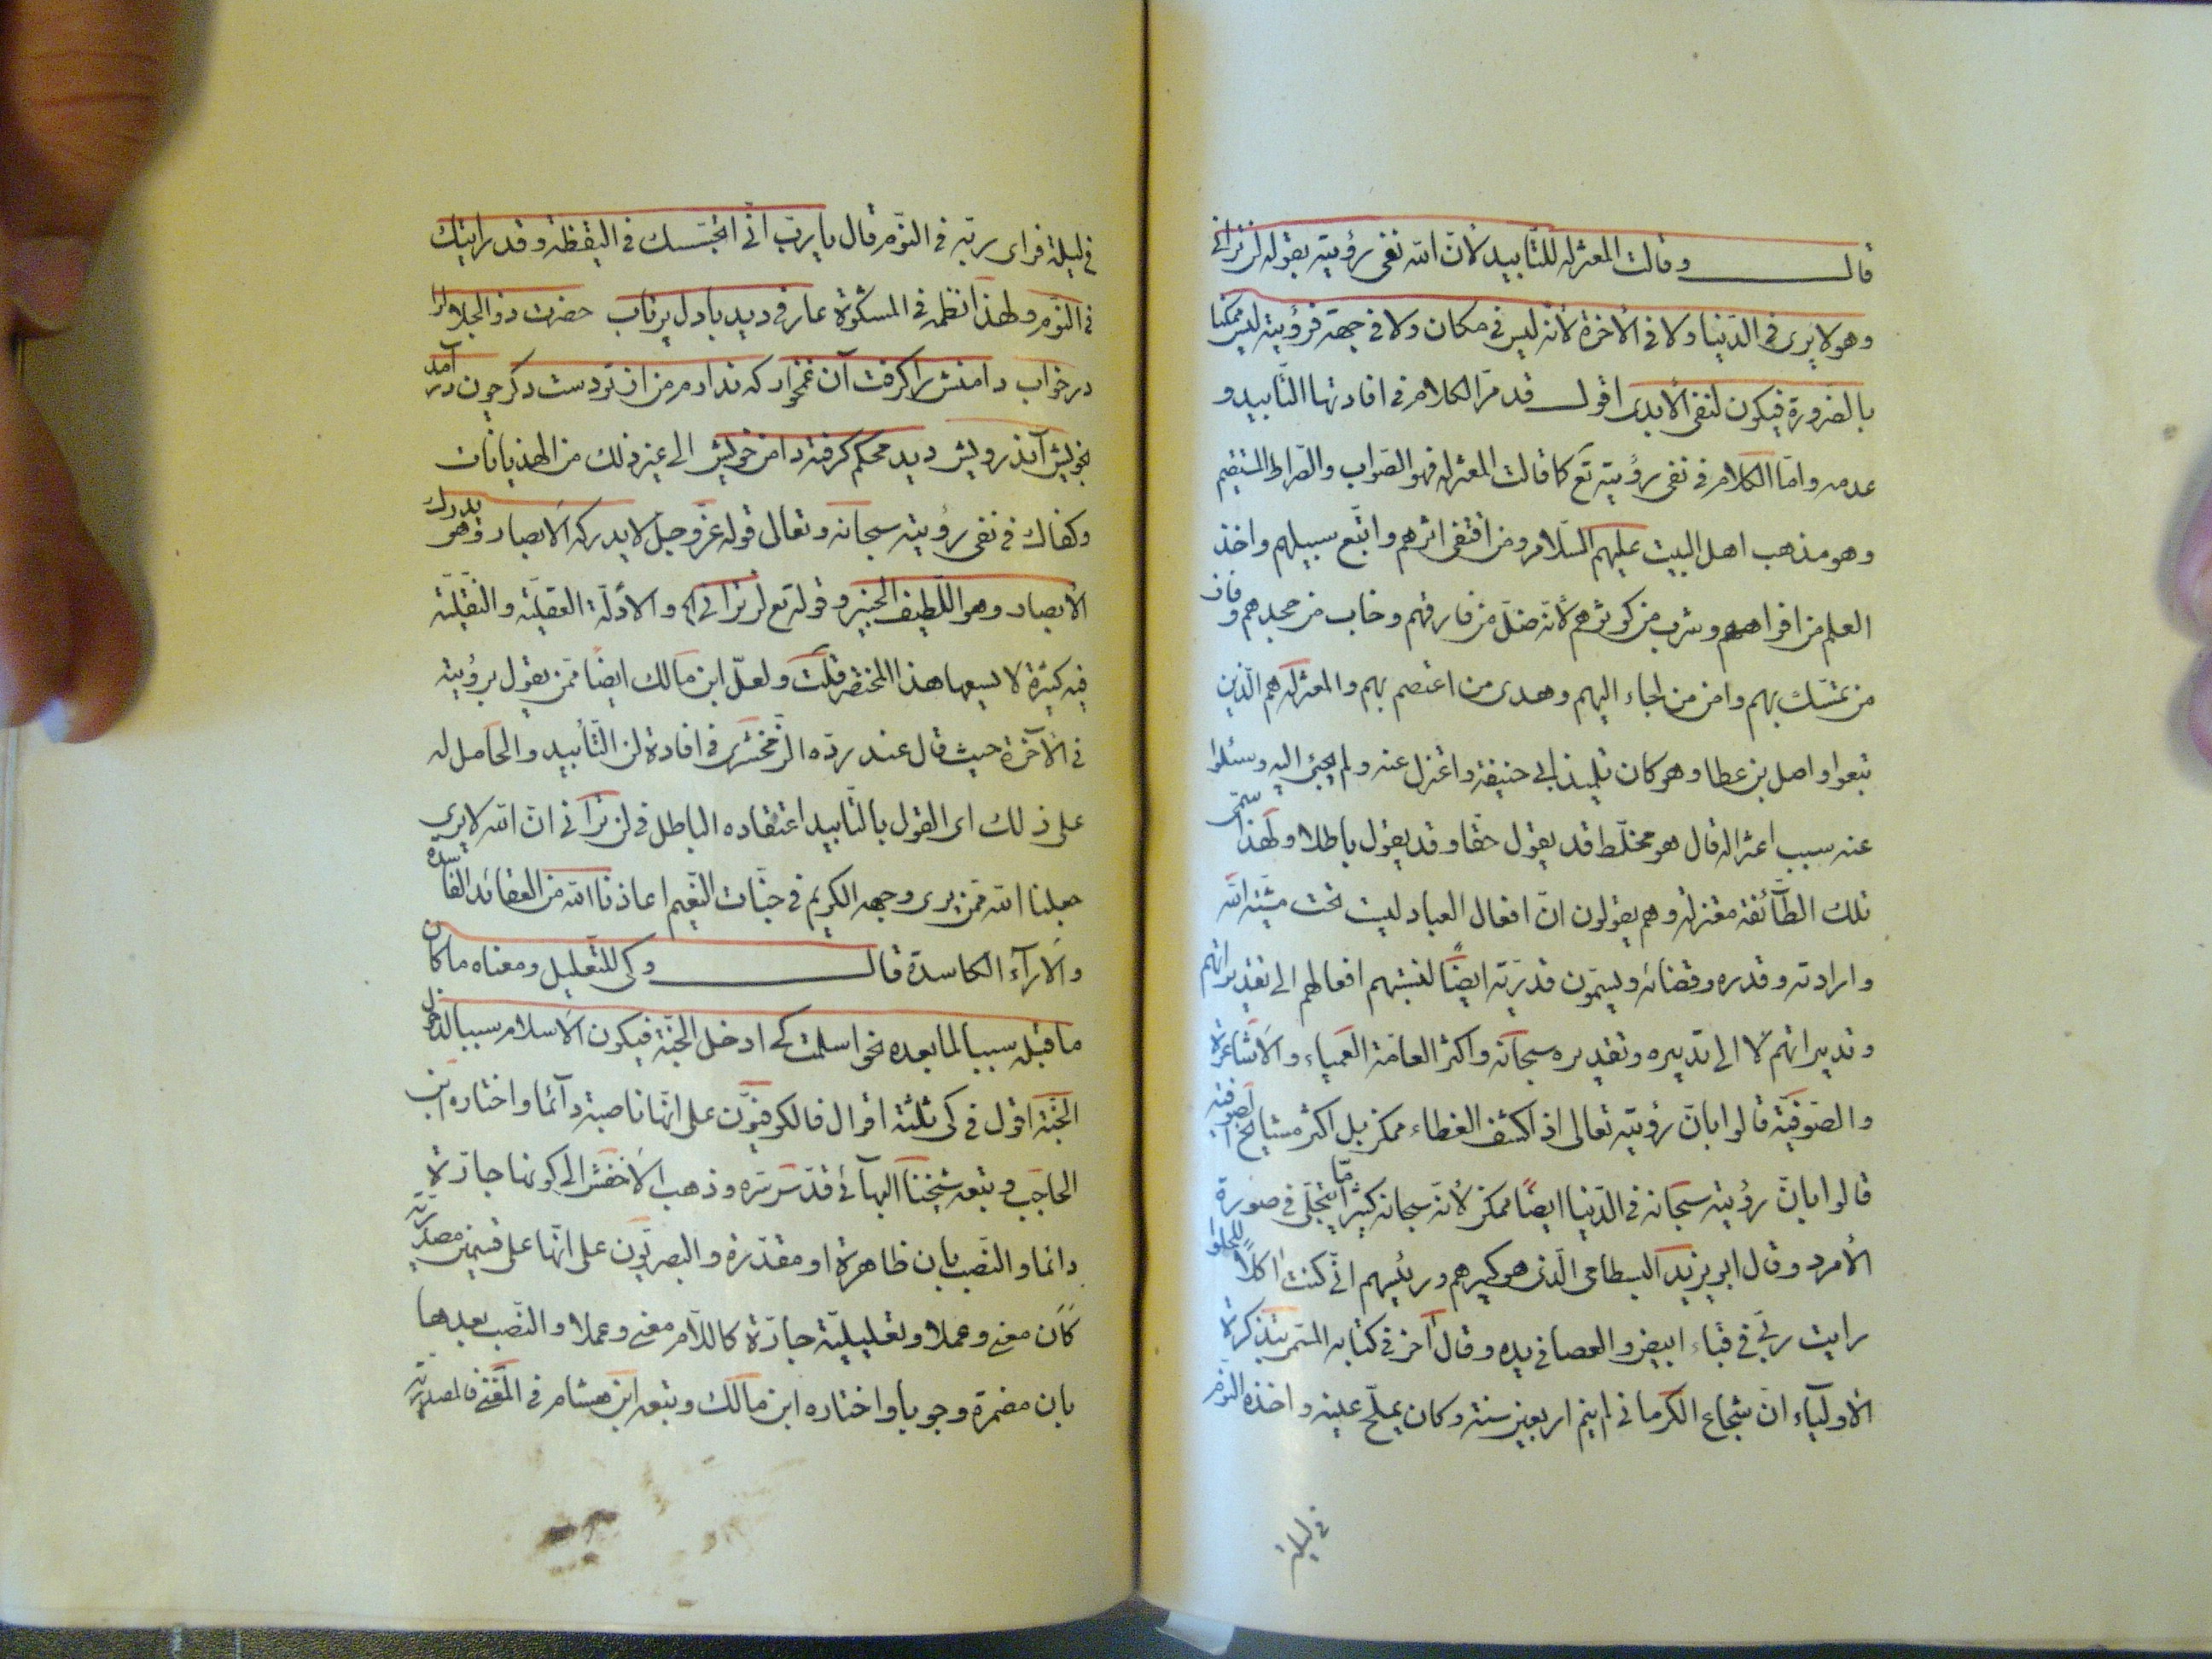 قال وقالت المعتزله للتأبيد لأنّ الله نفى رؤيته بقوله لن ترانى
وهو لا يرى فى الدّنيا ولا فى الأخرة لأنّه ليس فى مكان ولا فى جهة فرؤيته ليس ممكنا
بالضرورة فيكون لنفى الأبدى اقول قد مرّ الكلام فى افادتها التّأبيد و
عدمه وامّا الكلام فى نفى رؤيته تع كما قالت المعتزله فهو الصّواب والصّراط المستقيم
وهو مذهب اهل البيت عليهم السّلام ومن اقتفى اثرهم واتّبع سبيلهم واخذ
العلم من افواههم وشرب من كوثرهم لأنّه ضلّ من فارقهم وخاب من جحدهم وفاز
من تمسّك بهم وامن من لجاء اليهم وهدى من اعتصم بهم والمعتزله هم الّذين
تبعوا واصل بن عطا وهو كان تلميذ ابى حنيفة واعتزل عنه ولم يجئ اليه وسئلوا
عنه سبب اعتزاله قال هو مخلّط قد يقول حقّا وقد يقول باطلا ولهذا سمّى
تلك الطّائفة معتزله وهم يقولون انّ افعال العباد ليست تحت مشيّة الله
وارادته وقدره وقضائه ويسمّون قدريّة ايضًا لنسبتهم افعالهم الى تقديراتهم
وتدبيراتهم لا الى تدبيره وتقديره سبحانه واكثر العامّة العمياء والأشاعرة
والصّوفيّة قالوا بانّ رؤيته تعالى اذ اكشف الغطاء ممكن بل اكثر مشايخ الصّوفيّه
قالوا بانّ رؤيته سبحانه فى الدّنيا ايضًا ممكن لأنّه سبحانه كثيرًا مّا يتجلّى فى صورة
الأمرد وقال ابو يزيد البسطامى الّذى هو كبيرهم ورئيسهم انّى كنت اكلًا للحلوا
رايت ربّى فى قباء ابيض والعصا فى يده وقال آخر فى كتابه المسمّى بتذكرة
الأولياء انّ شجاع الكرمانى لم ينم اربعين سنة وكان يملّح عينه واخذه النّوم
فى ليلة
فى ليلة فراى ربّه فى النّوم قال يا ربّ انّى اتجسّسك فى اليقظة وقد رايتك
فى النّوم ولهذا نظمه فى المسكوة عارفى ديد با دل پرتاب حضرت ذو الجلال را
در خواب دامنش را گرفت آن غمخوار كه ندارم من از تو دست دگر چون در آمد
بخويش آن درويش ديد محكم گرفته دامن خويش الى غير ذلك من الهذيانات
وكفاك فى نفى رؤيته سبحانه وتعالى قوله عزّ وجلّ لا يدركه الأبصار وهو يدرك
الأبصار وهو اللّطيف الخبير وقوله تع لن ترانى اه والأدلّة العقليّة والنّقليّة
فيه كثيرة لا يسعها هذا المختصر قلت ولعلّ ابن مالك ايضًا ممّن يقول برؤيته
فى الآخرة حيث قال عند ردّه الزّمخشرى فى افادة لن التّأبيد والحامل له
على ذلك اى القول بالتّأبيد اعتقاده الباطل فى لن ترانى انّ الله لا يرى
جعلنا الله ممّن يرى وجهه الكريم فى جنّات النّعيم اعاذنا الله من العقائد الفاسدة
والآرآء الكاسدة قال وكى للتّعليل ومعناه ما كان
ما قبله سببا لما بعده نحو اسلمت كى ادخل الجنّة فيكون الأسلام سببا لدخول
الجنّة اقول فى كى ثلثة اقوال فالكوفيّون على انّها ناصبة دآئما واختاره ابن
الحاجب وتبعه شيخنا البهآئى قدّس سرّه وذهب الأخفش الى كونها جارّة
دائما والنّصب بان ظاهرة او مقدّرة والبصريّون على انّها على قسمين مصدريّة
كان معنى وعملا وتعليليّة جارّة كاللّام معنى وعملا والنّصب بعدها
بان مضمرة وجوبا واختاره ابن مالك وتبعه ابن هشام فى المغنى فالمصدريّة